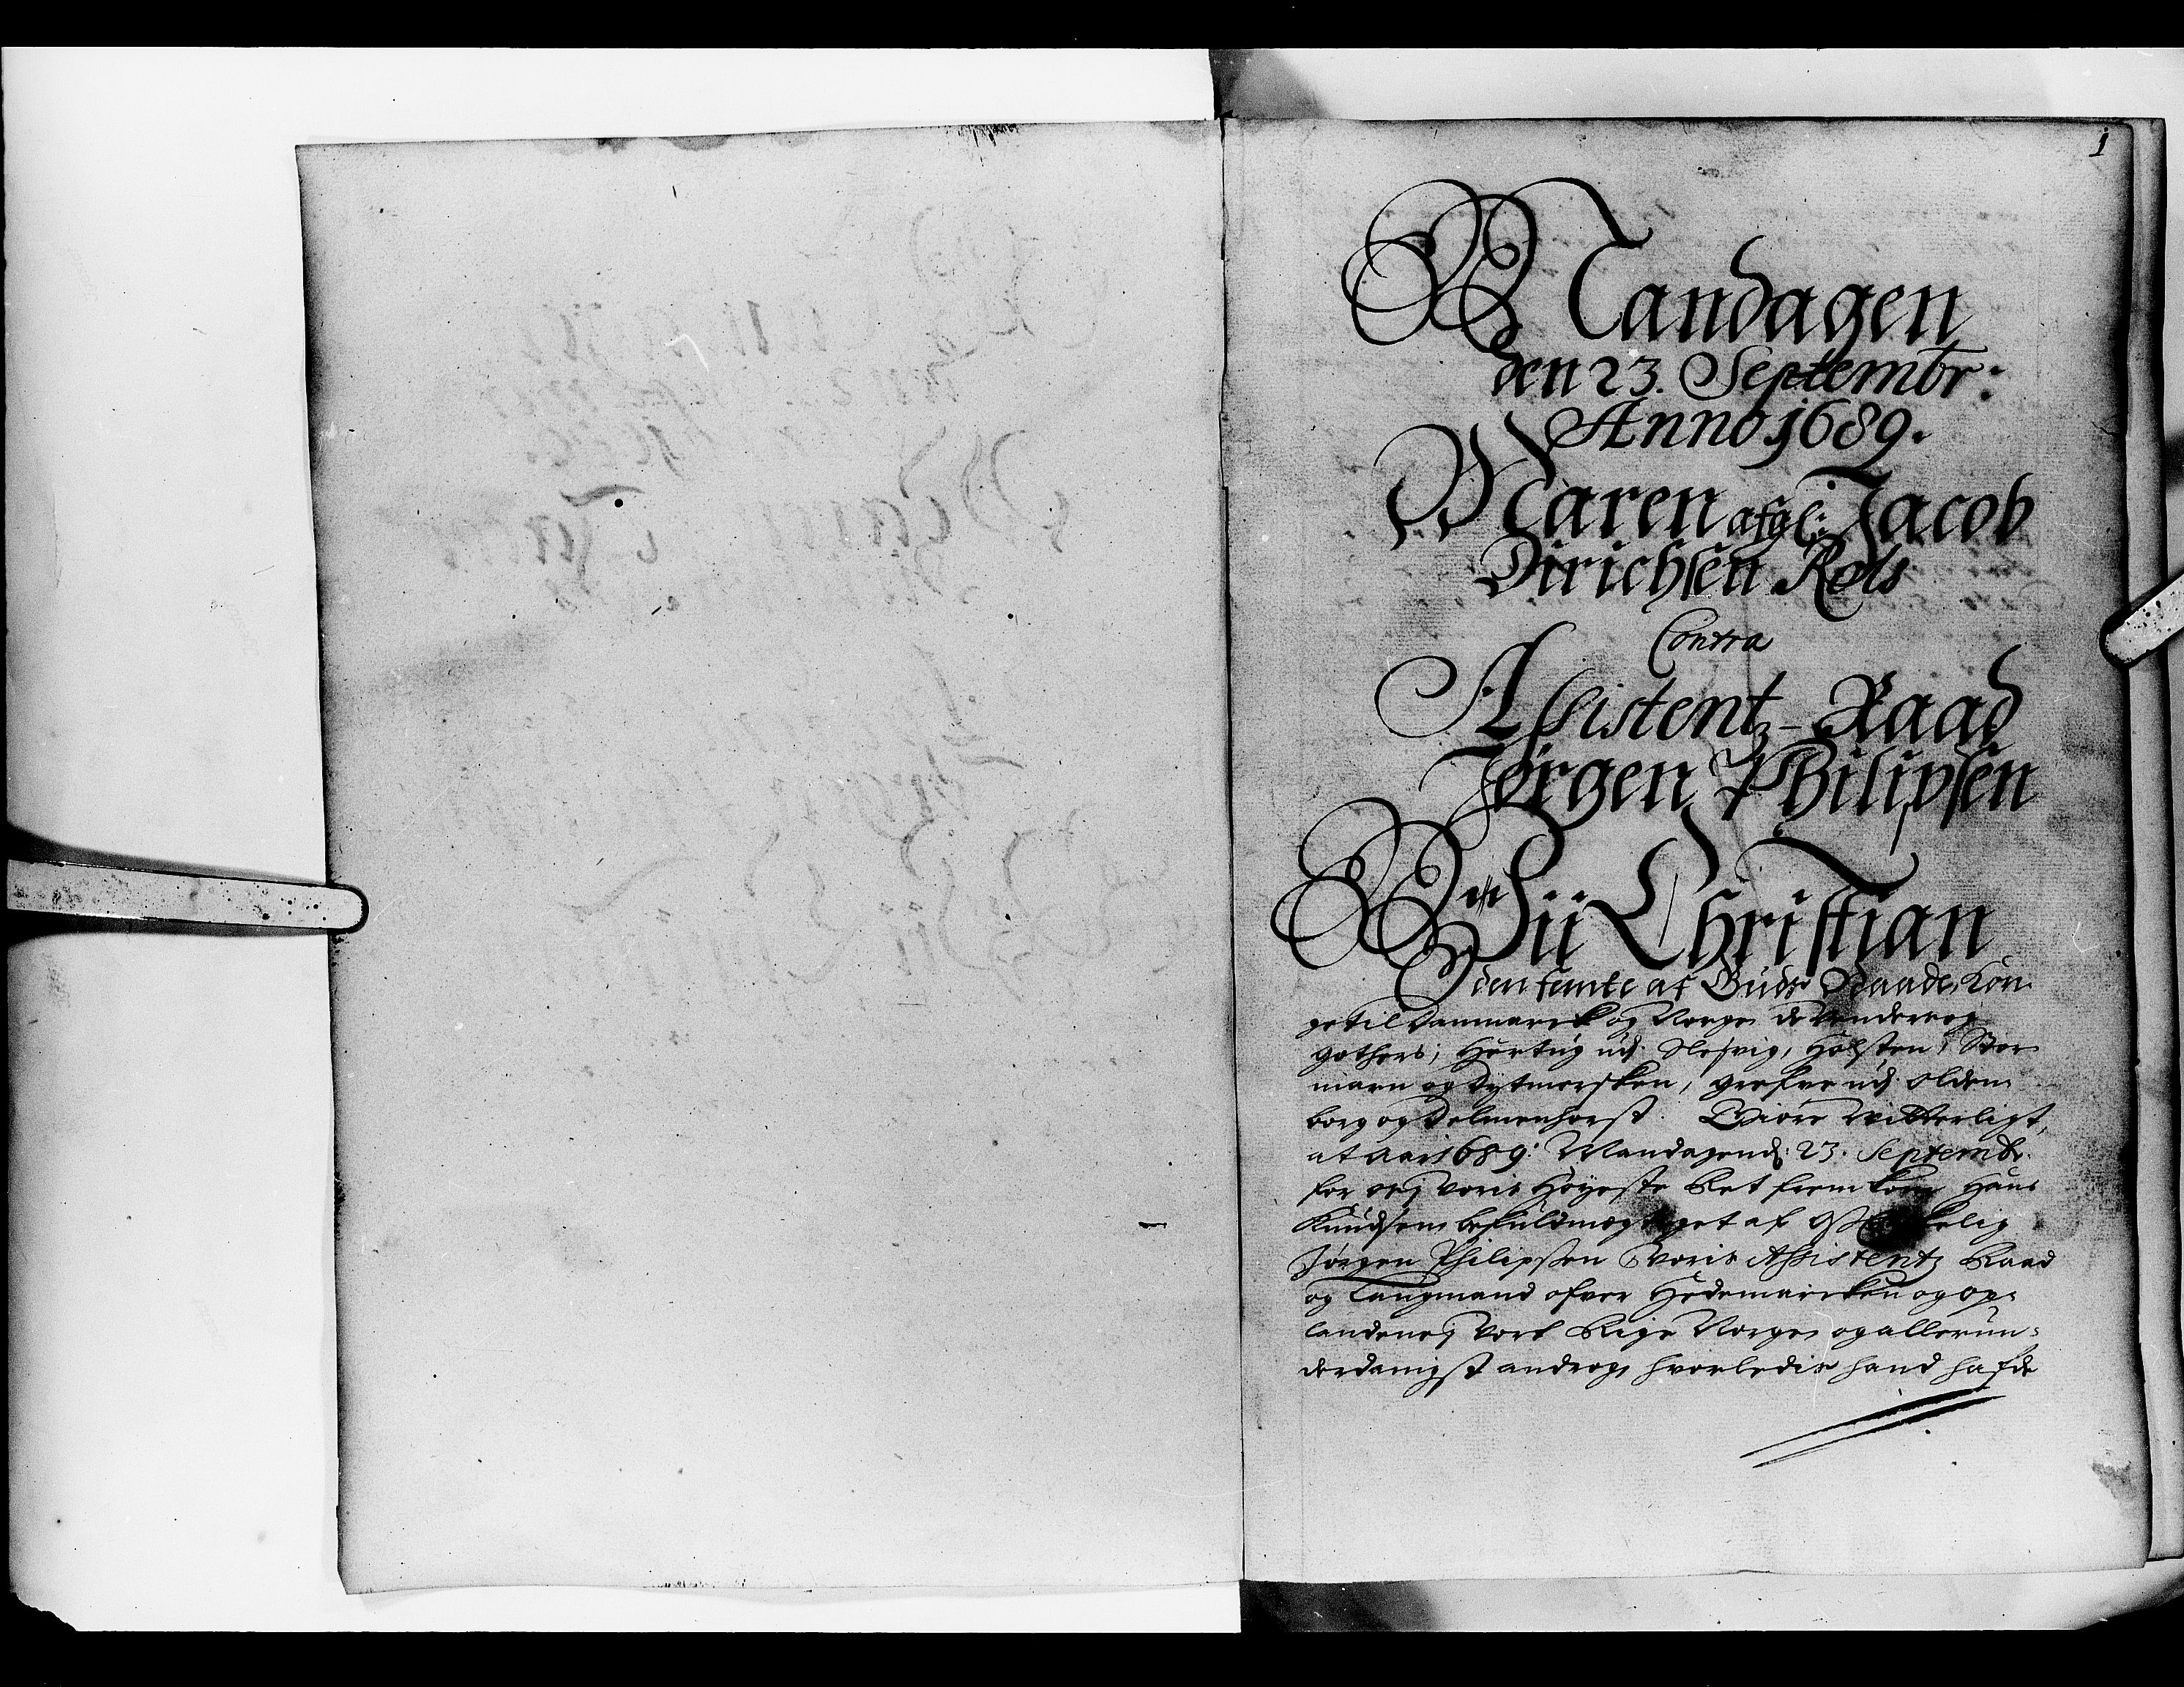 1
Mandagen
den 23. Septembr:
Anno 1689.
Maren afgl: Jacob
Dirichsen Røls
Contra
Assistentz-Raad
Jørgen Philipsen
Wii Christian
den femte af Guds Naade, Kon
ge til Danmarck og Norge, de Venders og
gothers; Hertug udj Slesvig, Holsten, Stor
marn og Dytmersken, grefve udj Olden
borg og Delmenhorst. Giøre Witterligt,
at Aar 1689: Mandagend: 23. Septembr.
for osz vores Høyeste Ret fremkom Hans
Knudsen befuldmegtiget af Oss
Jørgen Philipsen Voris Assistentz Raad
og Laugmand ofver Hedemarcken og Op-
landene j Vort Rige Norge og allerun-
derdanigst androg, hvorledis hand hafde